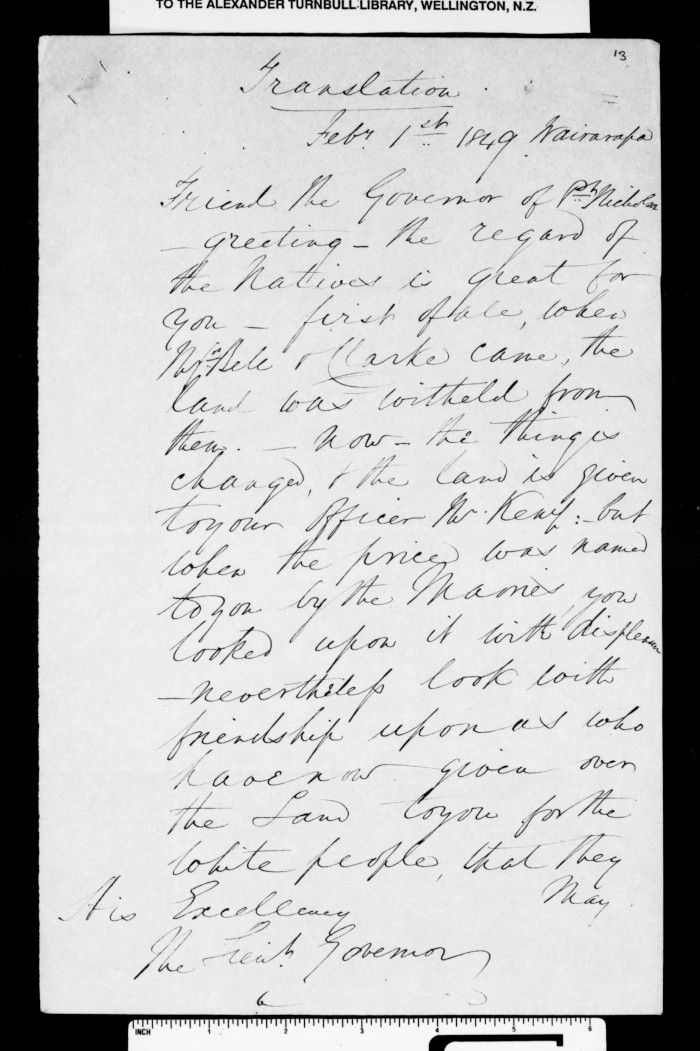 TO THE ALEXANDER TURNBULL LIBRARY, WELLINGTON, N.Z.
13
Translation
Feby 1st 1849 Wairarapa
Friend the Governor of Pt Nicholson
– greeting – the regard of
the Natives is great for
you – first of all, when
Mrs Bell & Clarke came, the
land was witheld from
them. – Now – the thing is
changed, & the land is given
to your Officer Mr. Kemp: – but
when the price was named
to you by the Maories, you
looked upon it with displeasure
– nevertheless look with
friendship upon us who
have now given over
the Land to you for the
White people, that they
May
His Excellency
The Lieut. Governor
INCH 1 2 3 4 5 6